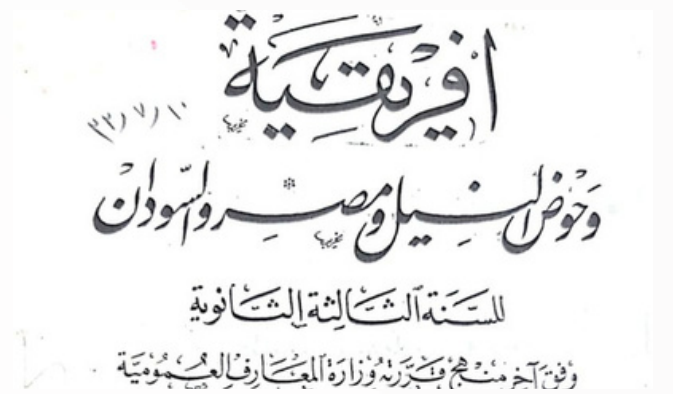 افريقية
وحوض النيل ومصر والسودان
للسنة الثالثة الثانوية
وفق آخر منهج قررته وزارة المعارف العمومية